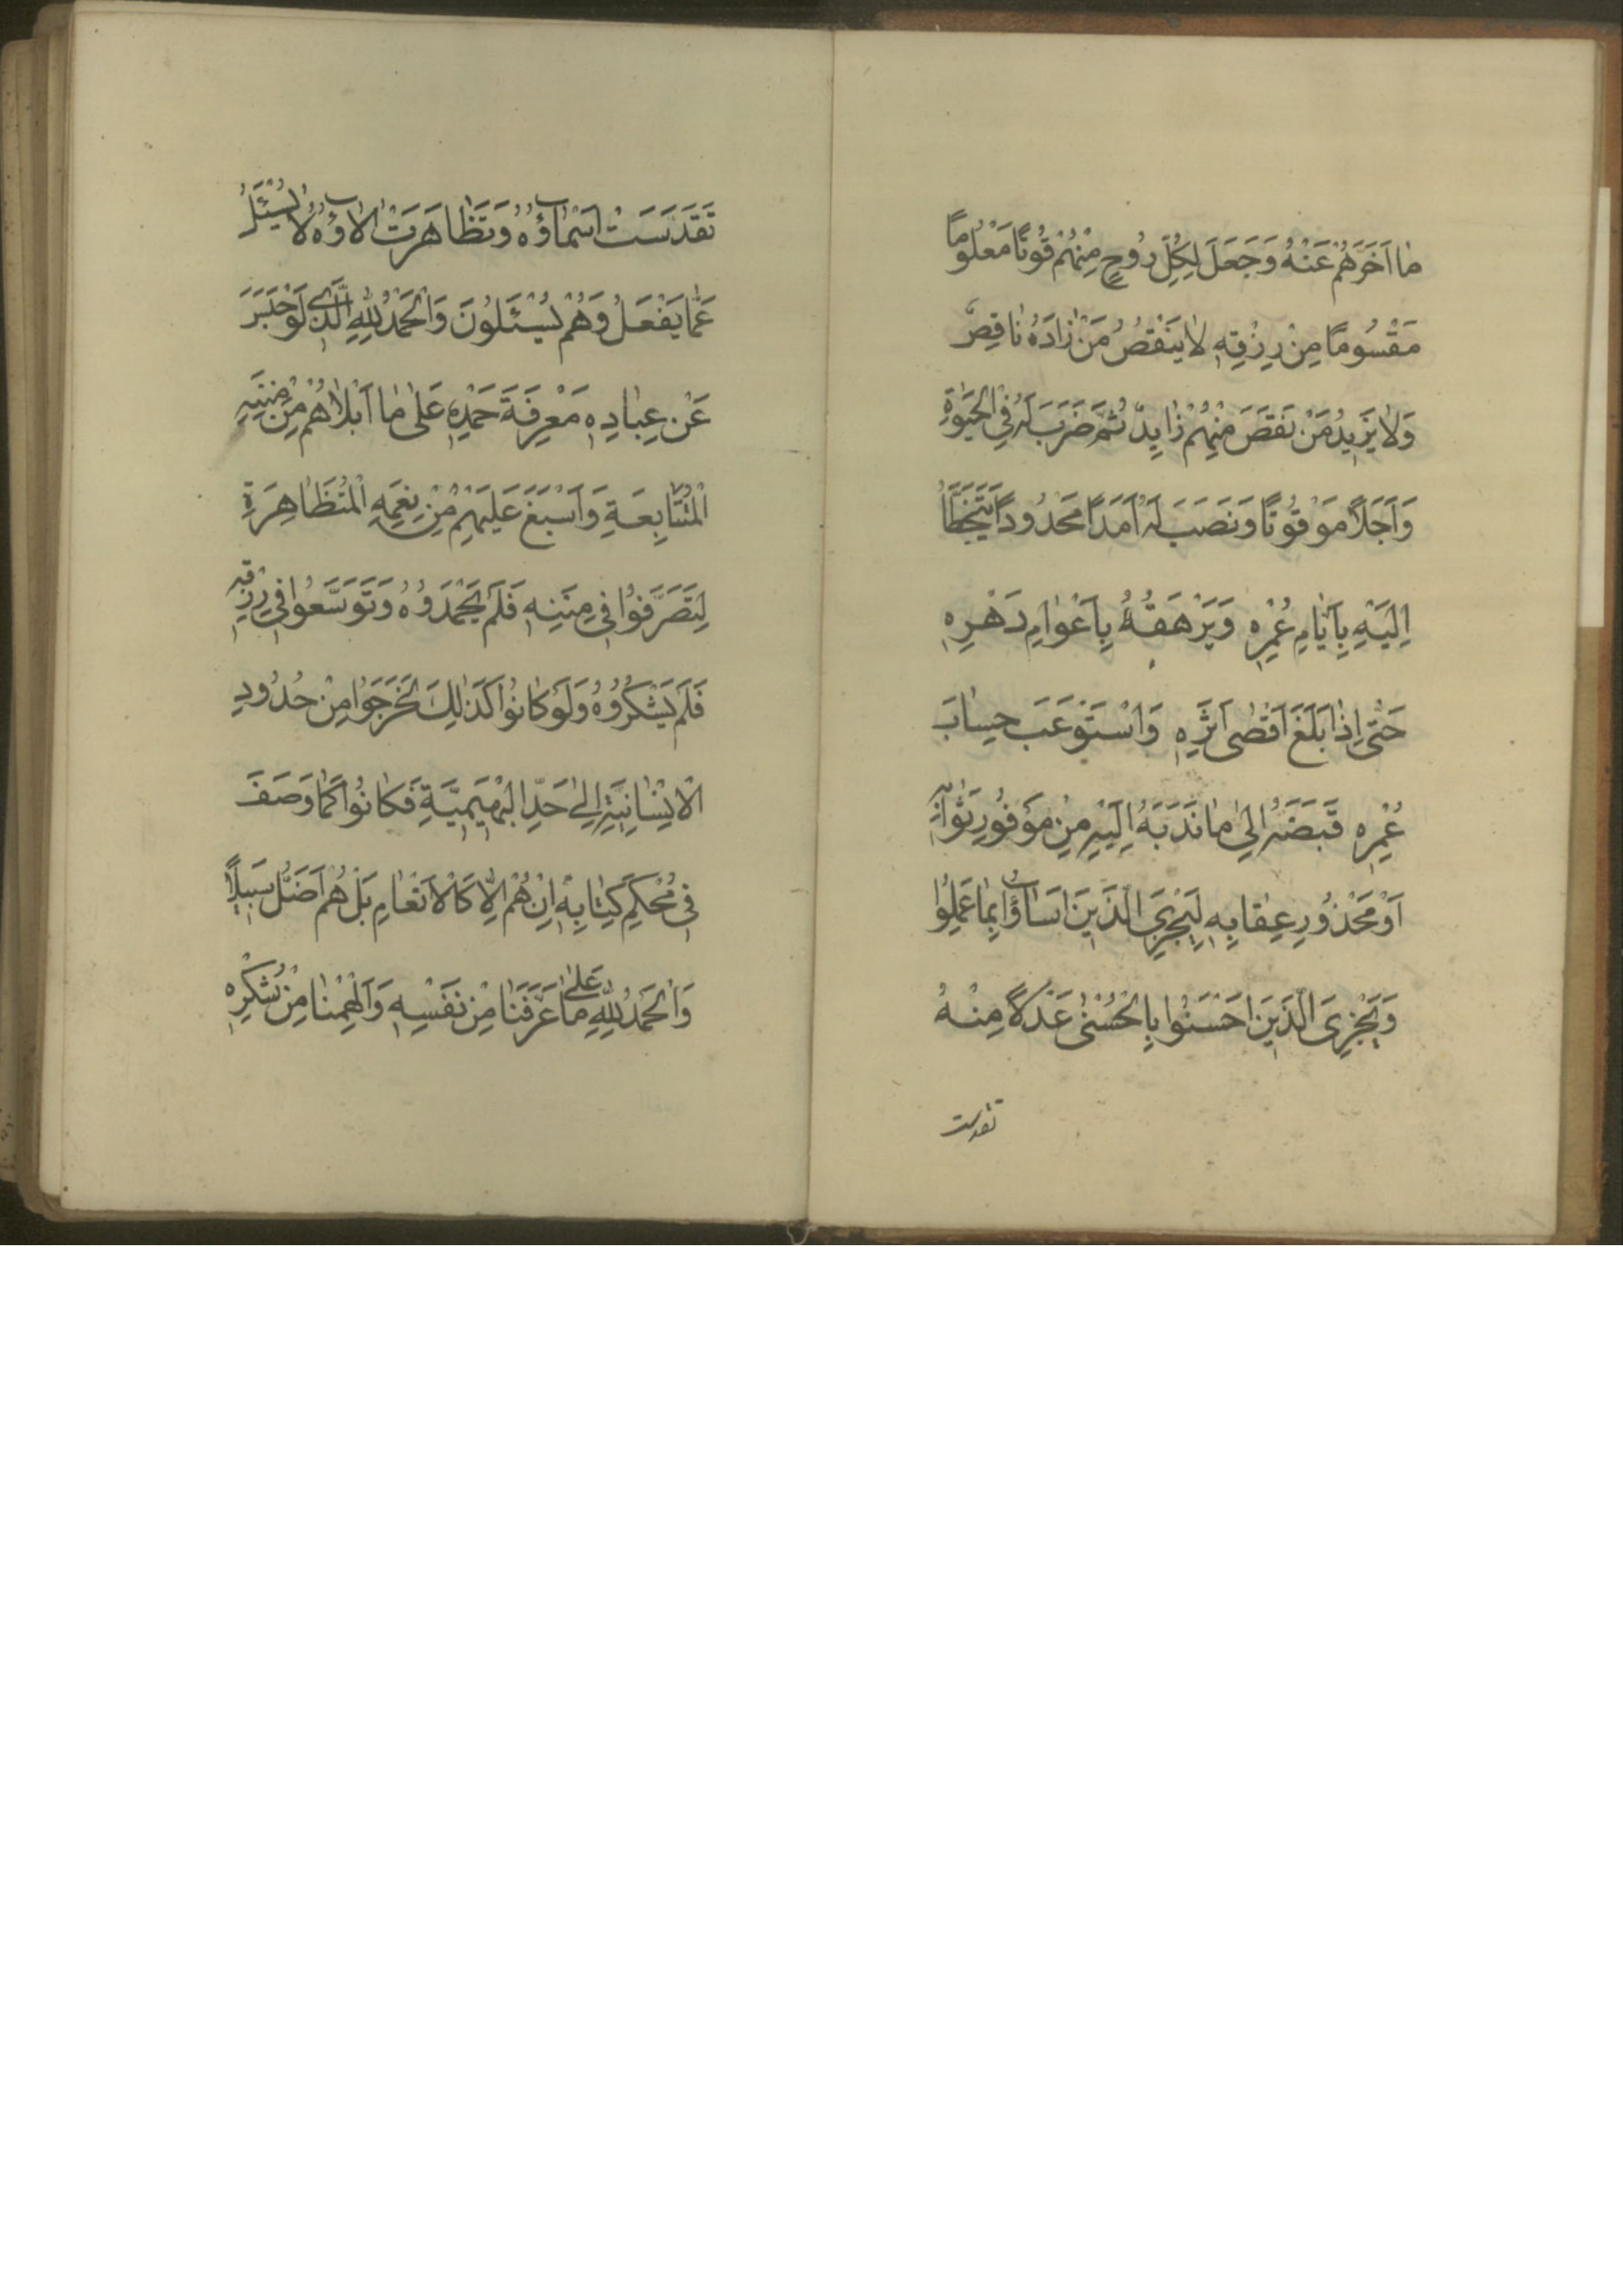 مٰا اَخَّرَهُمْ عَنْهُ وَجَعَلَ لِكُلِّ رُوحٍ مِنْهُمْ قُوتًا مَعْلُومًا
مَقْسُومًا مِنْ رِزْقِهِ لٰا يَنْقُصُ مَنْ زٰادَهُ نٰاقِصٌ
وَلٰا يَزِيدُ مَنْ نَقَصَ مِنْهُمْ زٰايِدٌ ثُمَّ ضَرَبَ لَهُ فِي الْحَيٰوةِ
وَ اَجَلًا مَوْقُوتًا وَنَصَبَ لَهُ اَمَدًا مَحْدُودًا يَتَخَطَّأُ
اِلَيْهِ بِاَيّٰامِ عُمْرِهِ وَيَرْهَقُهُ بِاَعْوٰامِ دَهْرِهِ
حَتّٰى اِذٰا بَلَغَ اَقْصٰى اَثَرِهِ وَاسْتَوْعَبَ حِسٰابَ
عُمْرِهِ قَبَضَهُ اِلٰى مٰا نَدَبَهُ اِلَيْهِ مِنْ مَوْفُورِ ثَوٰابِهِ
اَوْ مَحْذُورِ عِقٰابِهِ لِيَجْزِيَ الَّذِينَ اَسٰاؤُا بِمٰا عَمِلُوا
وَيَجْزِيَ الَّذِينَ اَحْسَنُوا بِالْحُسْنٰى عَدْلًا مِنْهُ
تقدست
تَقَدَّسَتْ اَسْمٰاؤُهُ وَتَظٰاهَرَتْ اٰلاٰؤُهُ لٰا يُسْئَلُ
عَمّٰا يَفْعَلُ وَهُمْ يُسْئَلُونَ وَالْحَمْدُ لِلّٰهِ الَّذِي لَوْ حَبَسَ
عَنْ عِبٰادِهِ مَعْرِفَةَ حَمْدِهِ عَلٰى مٰا اَبْلاٰهُمْ مِنْ مِنَنِهِ
الْمُتَتٰابِعَةِ وَاَسْبَغَ عَلَيْهِمْ مِنْ نِعَمِهِ الْمُتَظٰاهِرَةِ
لَتَصَرَّفُوا فِي مِنَنِهِ فَلَمْ يَحْمَدُوهُ وَتَوَسَّعُوا فِي رِزْقِهِ
فَلَمْ يَشْكُرُوهُ وَلَوْ كٰانُوا كَذٰلِكَ لَخَرَجُوا مِنْ حُدُودِ
الْاِنْسٰانِيَّةِ اِلٰى حَدِّ الْبَهِيمِيَّةِ فَكٰانُوا كَمٰا وَصَفَ
فِي مُحْكَمِ كِتٰابِهِ اِنْ هُمْ اِلّٰا كَالْاَنْعٰامِ بَلْ هُمْ اَضَلُّ سَبِيلًا
وَالْحَمْدُ لِلّٰهِ عَلٰى مٰا عَرَّفَنٰا مِنْ نَفْسِهِ وَاَلْهَمَنٰا مِنْ شُكْرِهِ